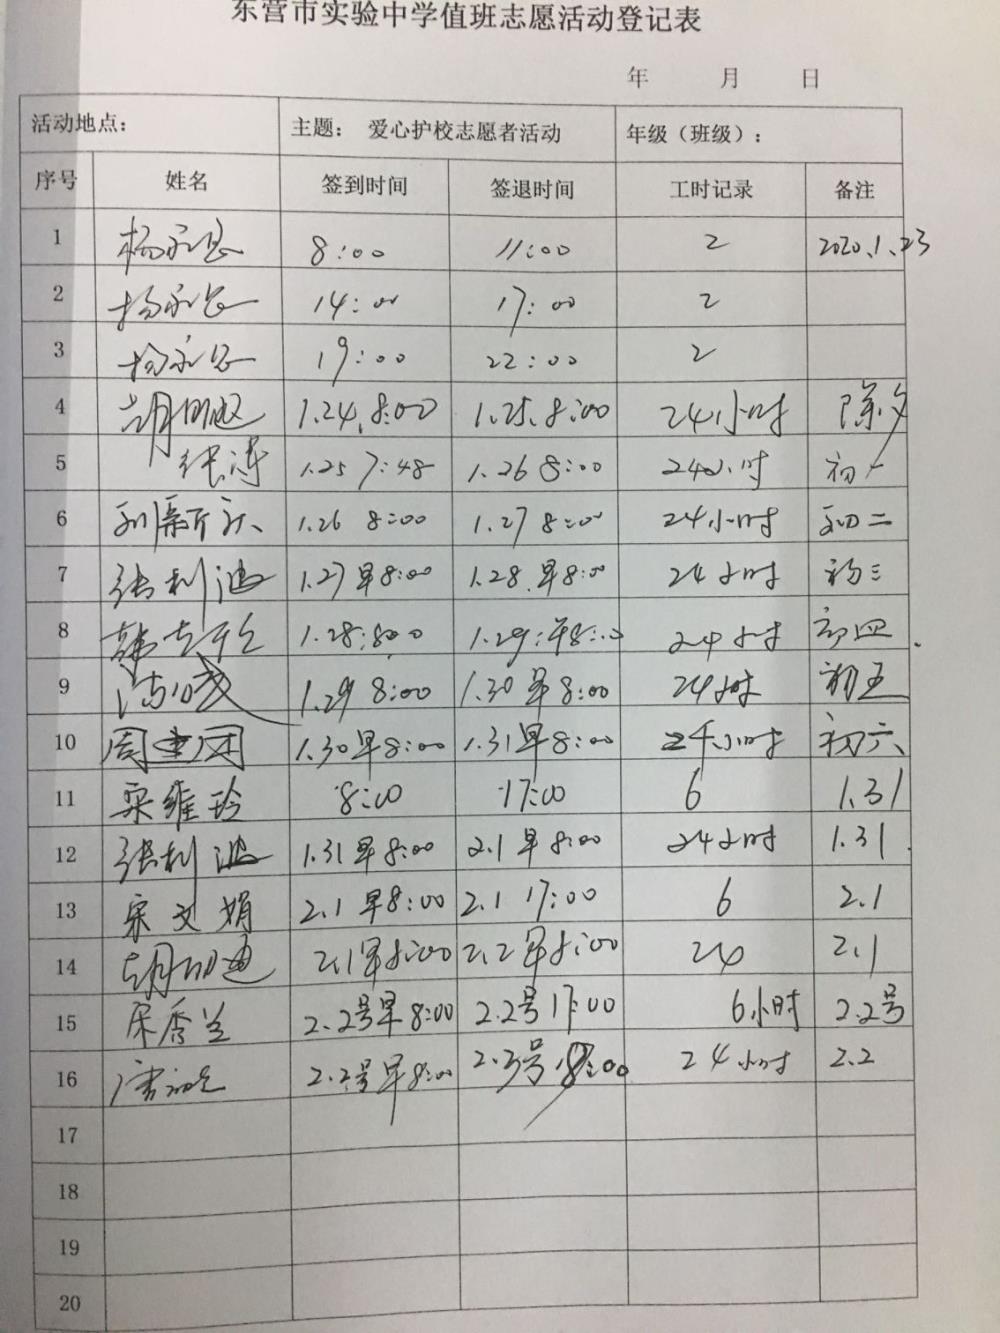 东营市实验中学值班志愿活动登记表
年 月 日
活动地点： 主题： 爱心护校志愿者活动 年级（班级）：
序号 姓名 签到时间 签退时间 工时记录 备注
1 8:00 11:00 2 2020.1.23
2 14:00 17:00 2
3 19:00 22:00 2
4 1.24.8:00 1.25.8:00 24小时 除夕
5 张涛 1.25 7:48 1.26 8:00 24小时 初一
6 1.26 8:00 1.27 8:00 24小时 初二
7 张利波 1.27早8:00 1.28.早8:00 24小时 初三
8 1.28:8:00 1.29:早8:00 24小时 初四
9 1.29 8:00 1.30早8:00 24小时 初五
10 周建国 1.30早8:00 1.31早8:00 24小时 初六
11 栾维玲 8:00 17:00 6 1.31
12 张利波 1.31早8:00 2.1早8:00 24小时 1.31
13 宋文娟 2.1早8:00 2.1 17:00 6 2.1
14 2.1早8:00 2.2早8:00 24 2.1
15 宋秀兰 2.2号早8:00 2.2号17:00 6小时 2.2号
16 2.2号早8:00 2.3号8:00 24小时 2.2
17
18
19
20